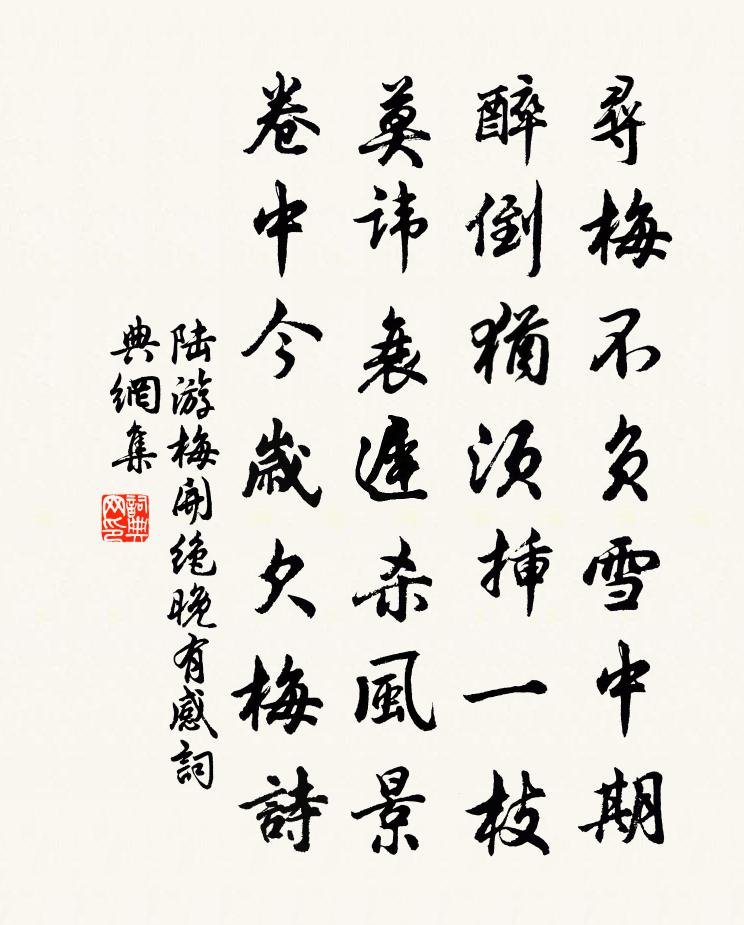 尋梅不負雪中期
醉倒猶須插一枝
莫諱衰遲杀風景
卷中今歲欠梅詩
陆游梅開绝晚有感詞
典網集
詞典網印